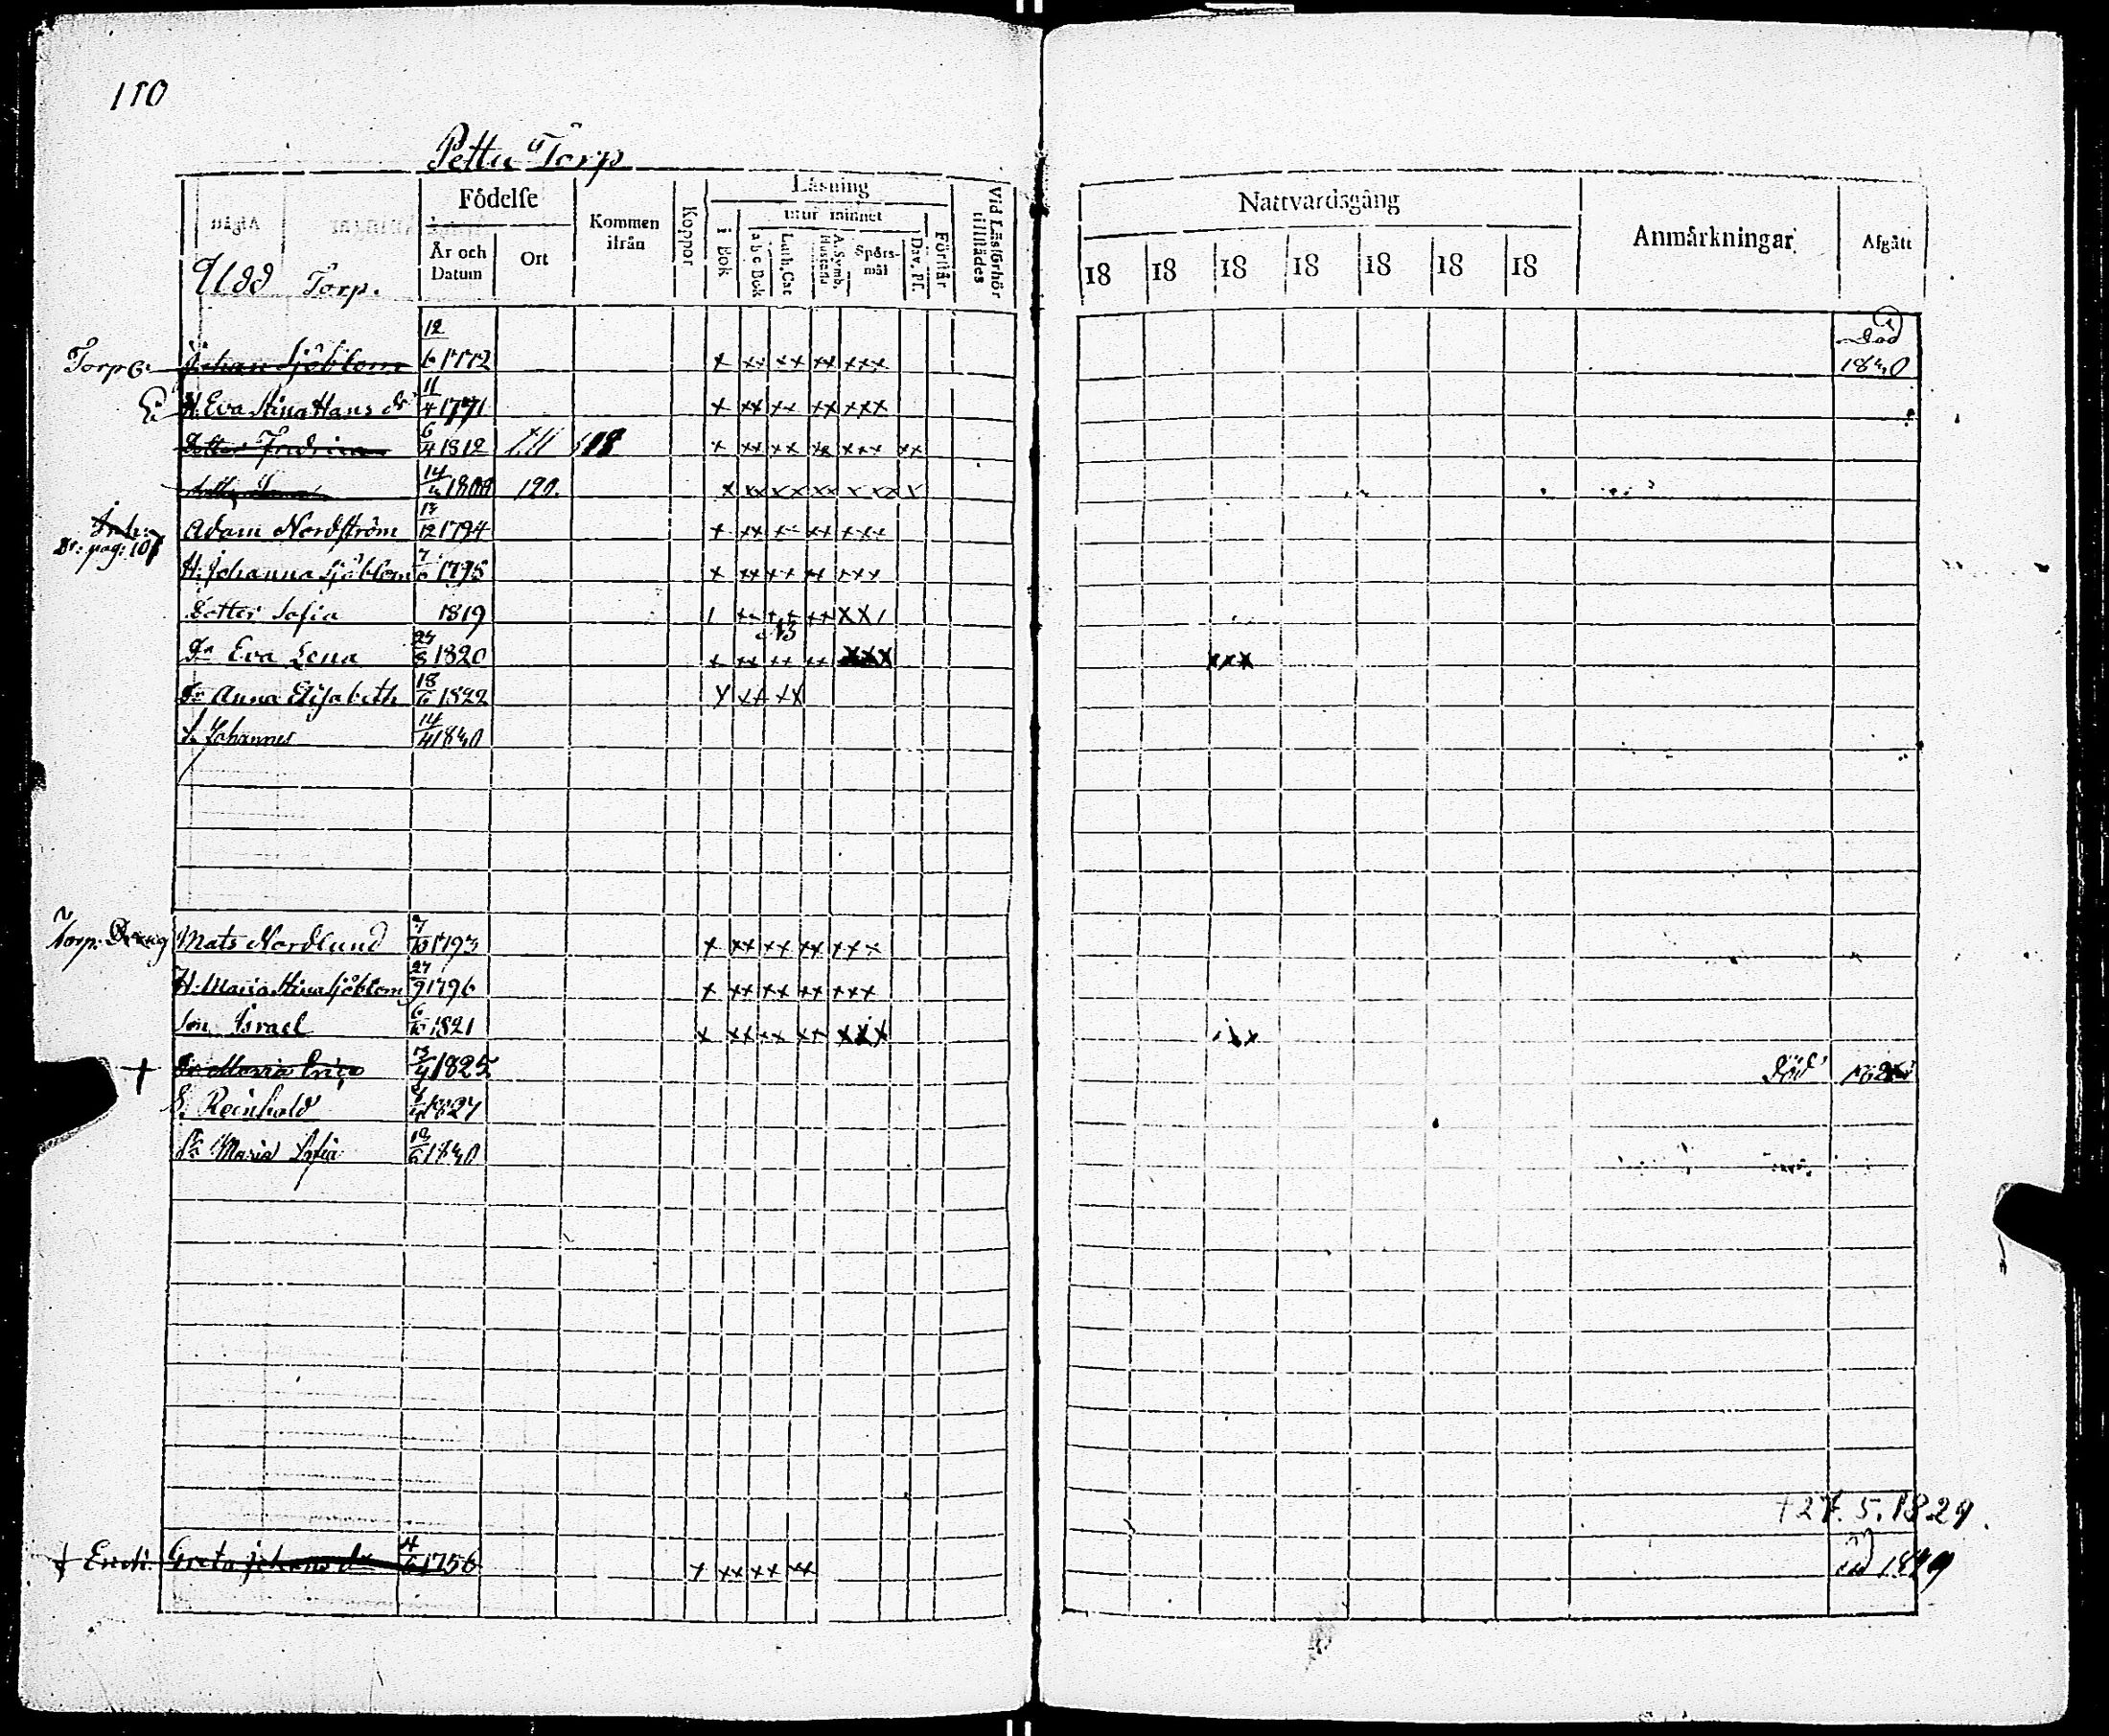 110
Pettu Torp
Födelse
Kommen ifrån
Koppor
Läsning
utur minnet
i Bok
a b c Bok
Luth. Cat
A. Symb. Hustafla
Spörsmål
Dav. Ps.
Förstår
Vid Läsförhör tillstädes
År och Datum
Ort
Udd Torp.
Nattvardsgång
Anmärkningar
Afgått
18 18 18 18 18 18 18
Torp Johan Sjöblom 12/6 1772 x xx xx xx xxx Död 1830
H. Eva Stina Hans dr 11/4 1771 x xx xx xx xxx
Dotter Fredrica 6/4 1812 till 118 x xx xx xx xxx xx
14 1808 120. x xx xx xx xxx x
Inh:
pag: 107
Adam Nordström 13/12 1794 x xx xx xx xxx
H. Johanna Sjöblom 7/6 1795 x xx xx xx xxx
Dotter Sofia 1819
Dr Eva Lena 24/8 1820 x xx xx xx xxx xxx
Dr Anna Elisabeth 18/6 1822 x xx xx
S. Johannes 14/4 1830
Torp: Mats Nordlund 7/10 1793 x xx xx xx xxx
H. Maria Stina Sjöblom 24/9 1796 x xx xx xx xxx
Son Israel 6/10 1821 x xx xx xx xxx
+ Dr Maria 13/4 1825 Död
S. Reinhold 8/4 1827
Dr Maria Sofia 13/6 1830
+ 27. 5. 1829.
+ Enk: Greta Johans dr 1756 x xx xx xx död 1829